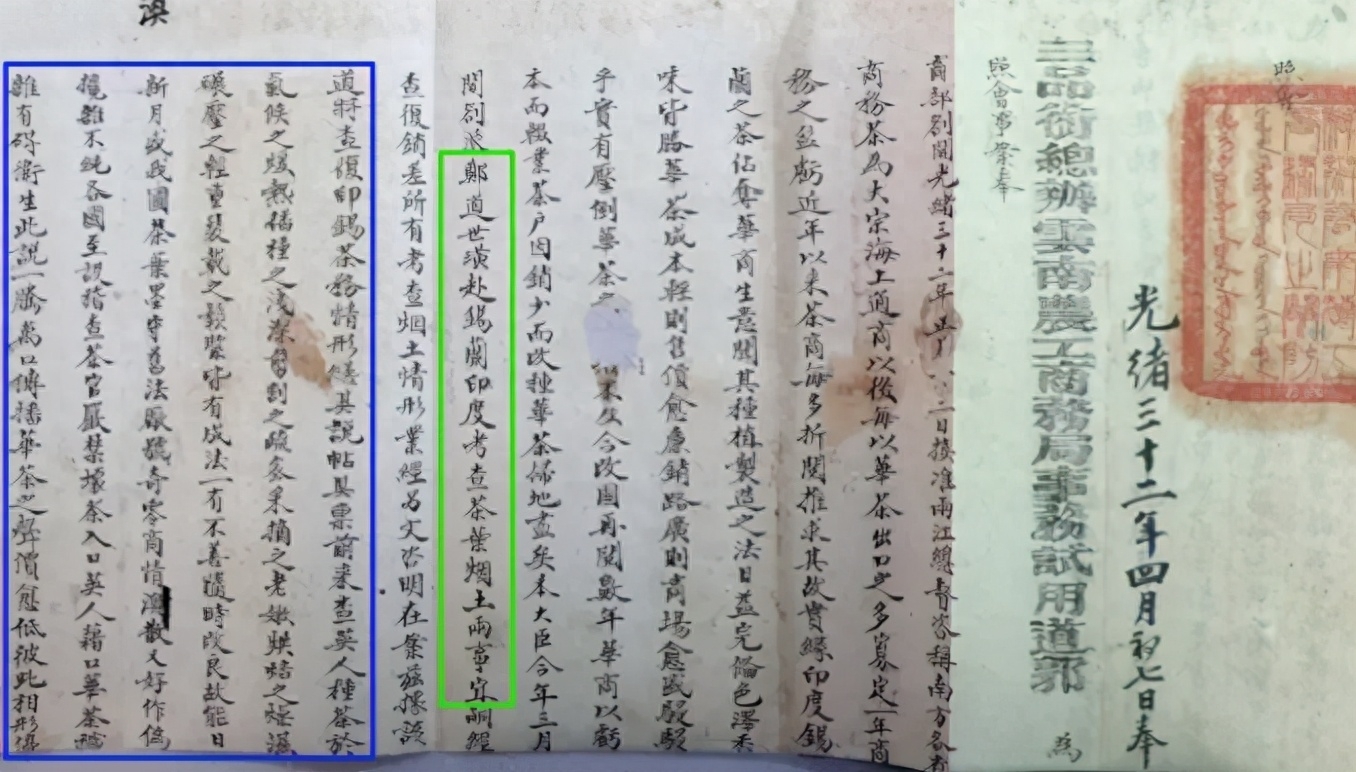 光緒三十二年四月初七日奉
二品銜總辦雲南農工商務局事務試用道郭 為
照會事案奉
商部劄開光緒三十二年正月 二日接准兩江總督咨稱南方各省
商務茶為大宗海上通商以後每以華茶出口之多寡定一年商
務之盈虧近年以來茶商每多折閱推求其故實緣印度錫
蘭之茶佔奪華商生意關其種植製造之法日益完備色澤香
味皆勝華茶成本輕則售價愈廉銷路廣則商場愈盛駸駸
乎實有壓倒華茶之 若不及今改圖再閱數年華商以虧
本而輟業茶戶因銷少而改種華茶掃地盡矣本大臣今年三月
間劄派鄭道世璜赴錫蘭印度考查茶葉烟土兩事宜嗣經
查復銷差所有考查烟土情形業經另文咨明在案茲據該
道將查復印錫茶務情形繕具說帖具稟前來查英人種茶於
氣候之煖熱播種之淺深剪割之疏密采摘之老嫩烘焙之燥濕
碾壓之輕重裝裁之鬆緊皆有成法一有不善隨時改良故能日
新月盛我國茶葉墨守舊法厰號奇零商情渙散又好作偽
攙雜不純各國至設稽查茶官嚴禁壞茶入口英人藉口華茶穢
雜有碍衛生此說一騰萬口傳播華茶之聲價愈低彼此相形